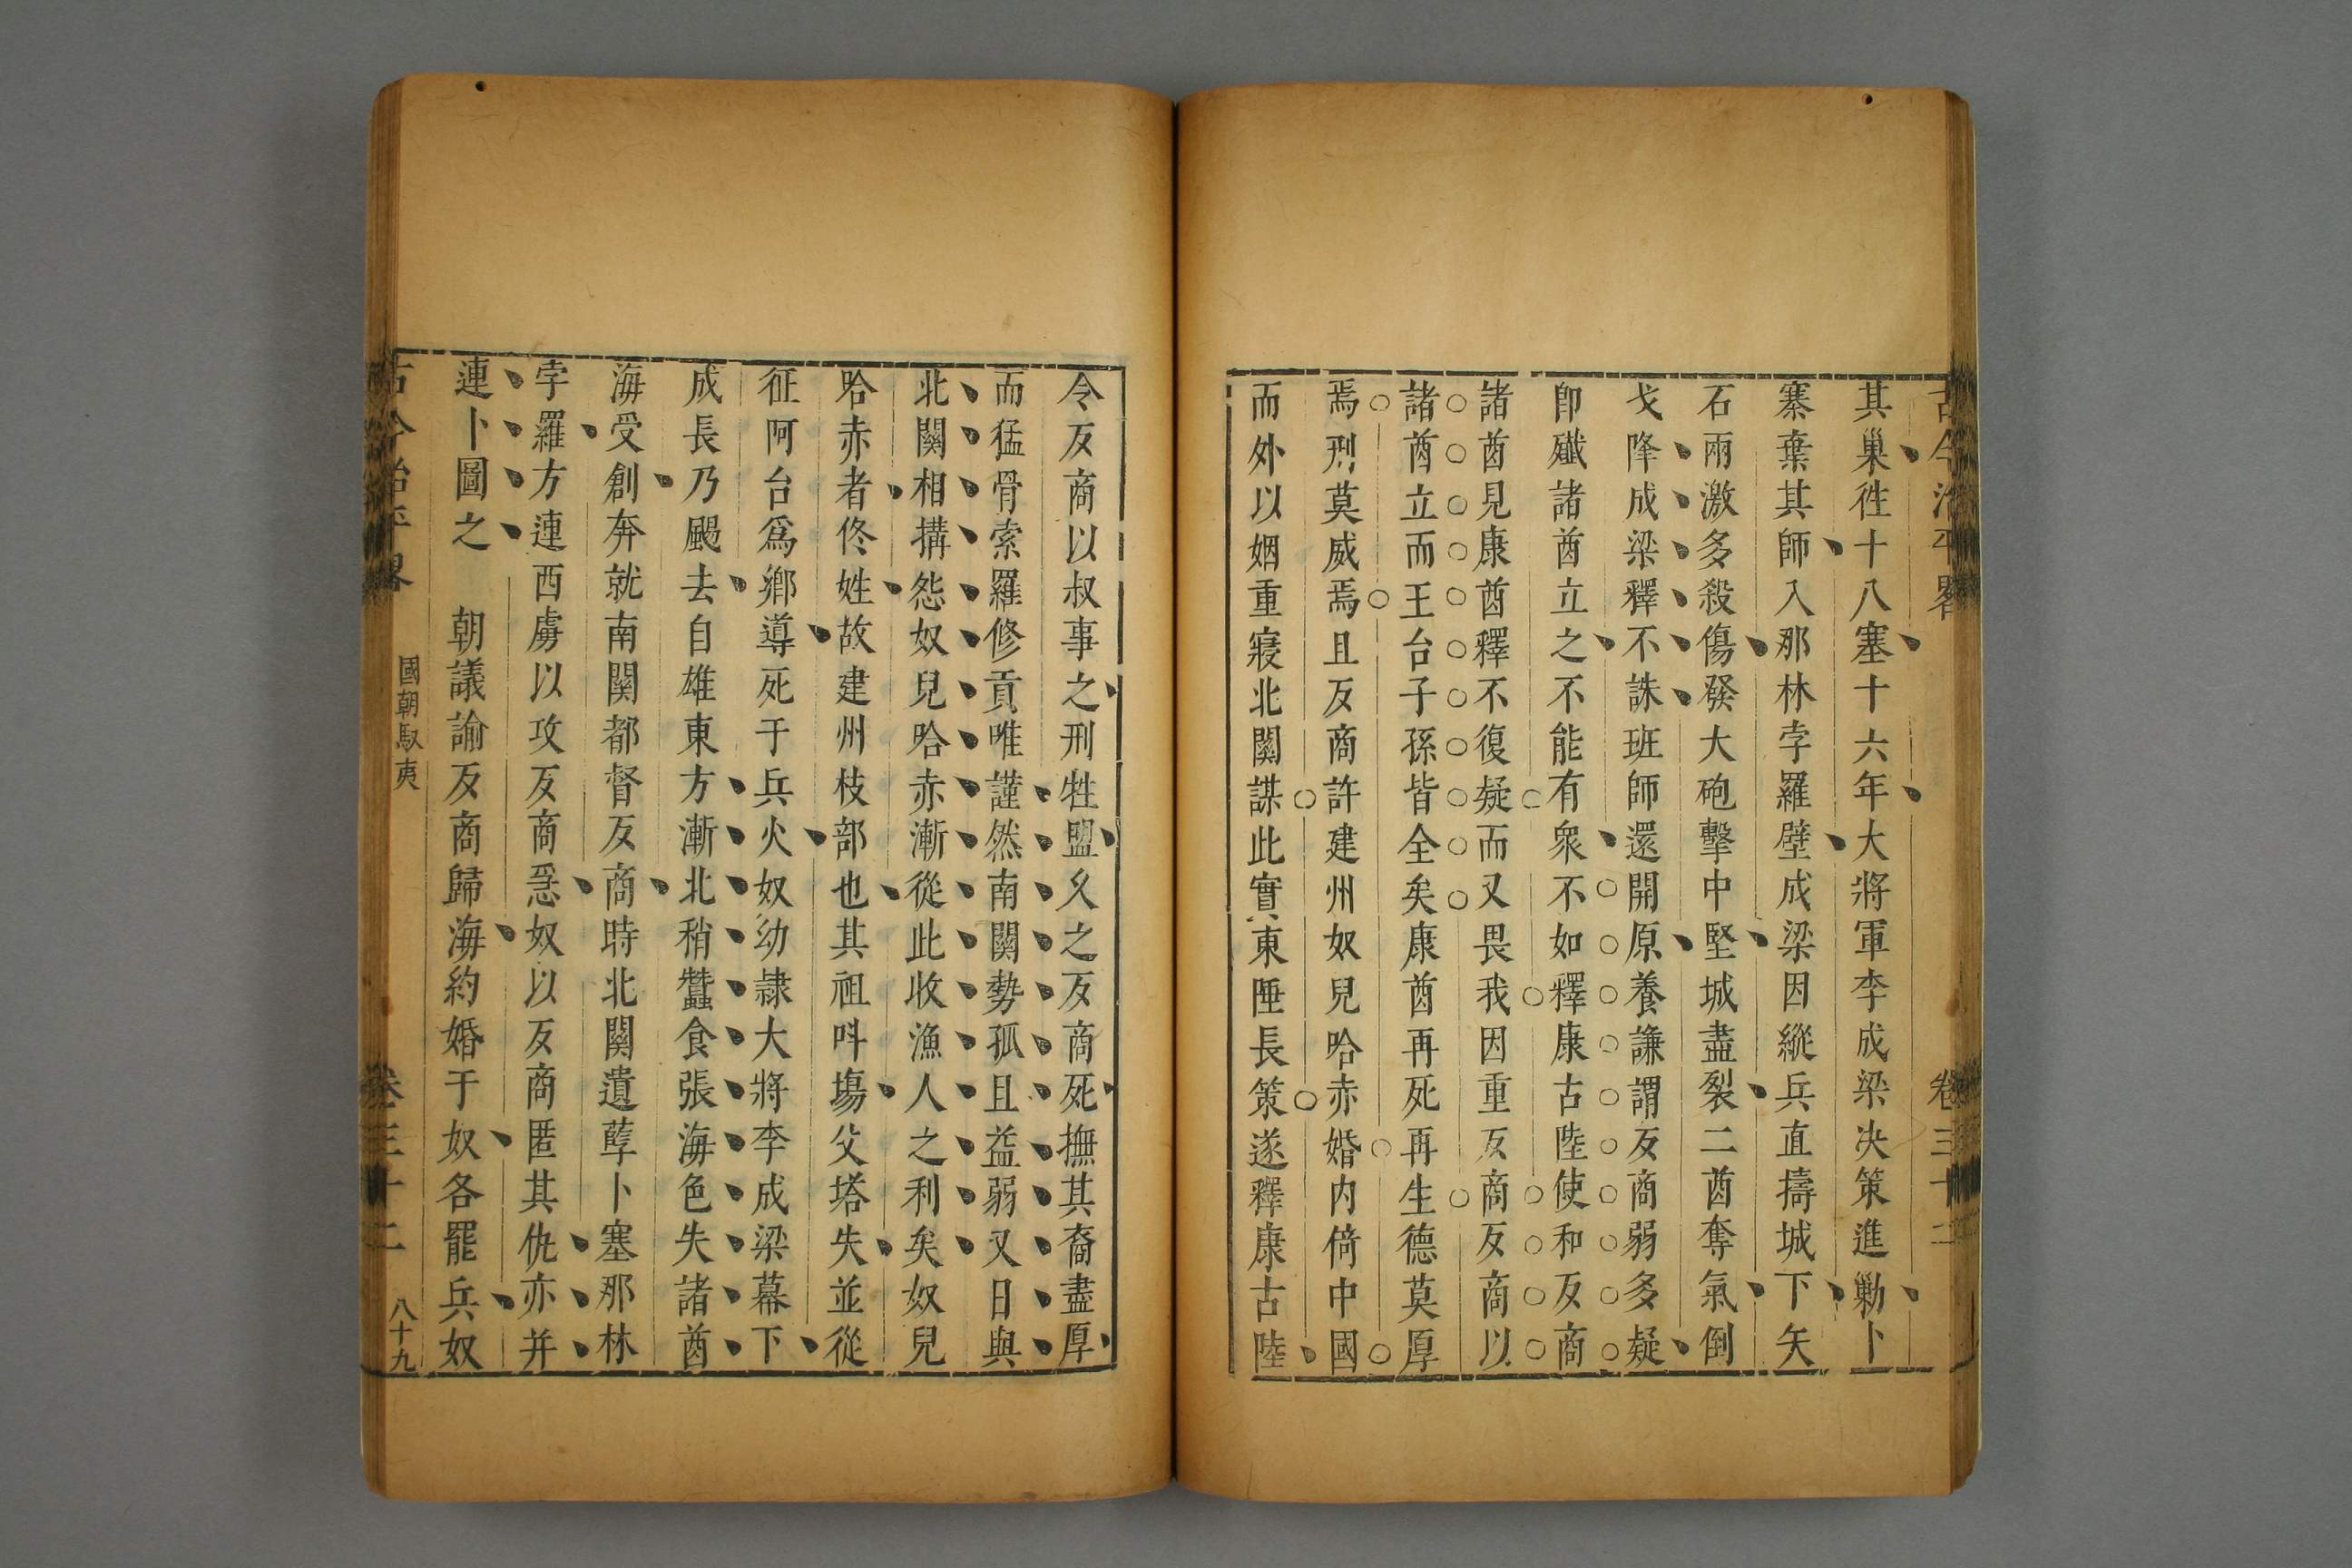 古今治平畧
卷三十二
其巢徃十八塞十六年大將軍李成梁决策進勦卜
寨棄其師入那林孛羅壁成梁因縱兵直擣城下矢
石雨激多殺傷發大砲擊中堅城盡裂二酋奪氣倒
戈降成梁釋不誅班師還開原養謙謂反商弱多疑
卽殲諸酋立之不能有衆不如釋康古陸使和反商
諸酋見康酋釋不復疑而又畏我因重反商反商以
諸酋立而王台子孫皆全矣康酋再死再生德莫厚
焉刑莫威焉且反商許建州奴兒哈赤婚内倚中國
而外以姻重寢北關謀此實東陲長策遂釋康古陸
令反商以叔事之刑牲盟久之反商死撫其裔盡厚
而猛骨索羅修貢唯謹然南關勢孤且益弱又日與
北關相搆怨奴兒哈赤漸從此收漁人之利矣奴兒
哈赤者佟姓故建州枝部也其祖呌塲父塔失並從
征阿台爲鄉導死于兵火奴幼隷大將李成梁幕下
成長乃颺去自雄東方漸北稍蠶食張海色失諸酋
海受創奔就南關都督反商時北關遺孽卜塞那林
孛羅方連西虜以攻反商惎奴以反商匿其仇亦并
連卜圖之　朝議諭反商歸海約婚于奴各罷兵奴
古今治平畧
國朝馭夷
卷三十二
八十九